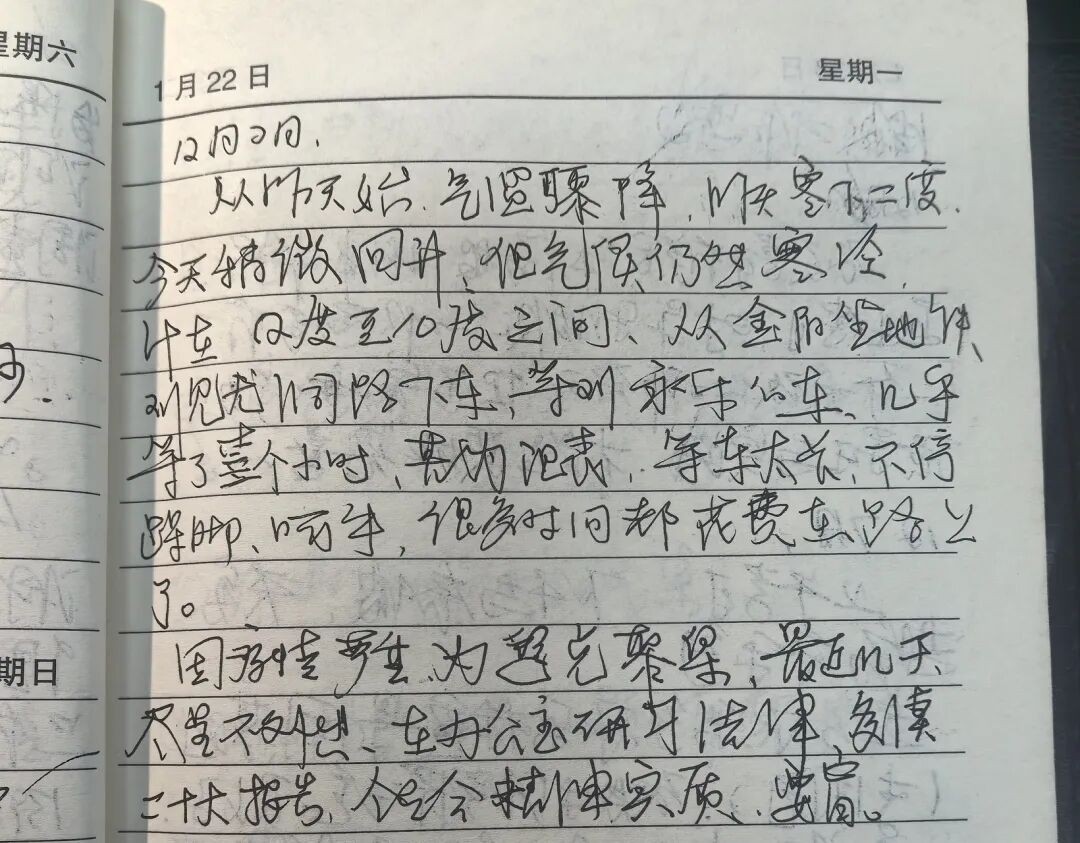 星期六
1月22日 星期一
12月2日.
从昨天始、气温骤降,昨天零下二度.
今天稍微回升、但气候仍然寒冷.
计在 12度至10度之间、从金阳坐地铁
到见龙洞路下车、等到 公车、几乎
等了壹个小时,甚为 ,等车太长、不停
跺脚、呵手,很多时间都花费在路上
了。
因疫情 为避免聚集、最近几天
尽量不外出、在办公室研习法律、多读
二十大报告, 会精神实质、 。
期日